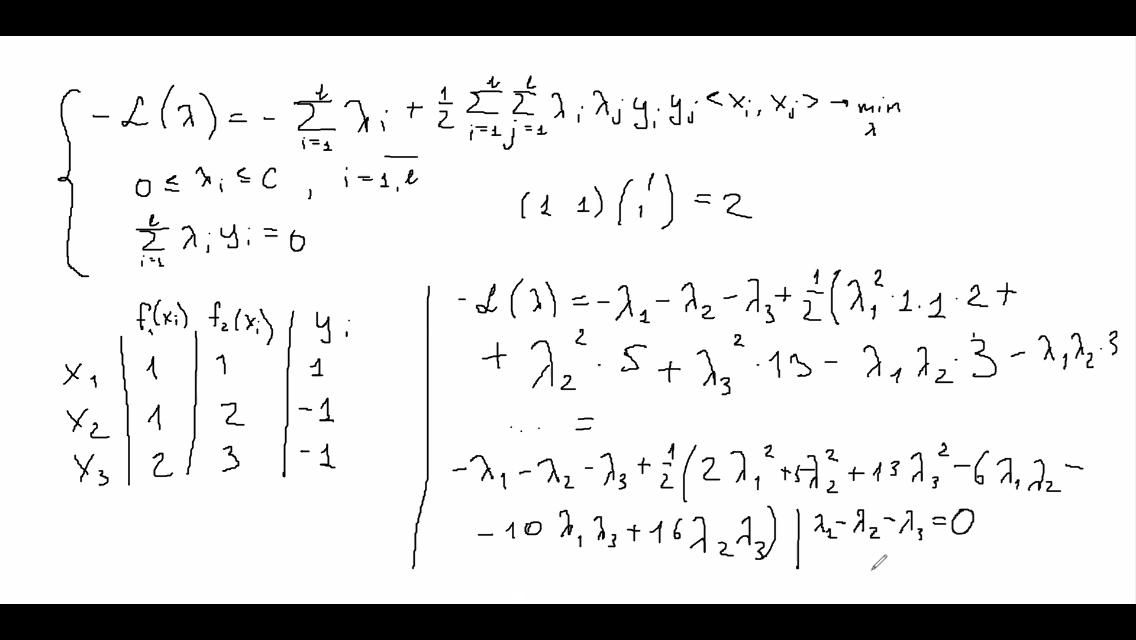 -ℒ(λ) = - Σ_{i=1}^{l} λ_i + 1/2 Σ_{i=1}^{l} Σ_{j=1}^{l} λ_i λ_j y_i y_j <x_i, x_j> → min_λ
0 ≤ λ_i ≤ C , i = \overline{1,l}
(1 1)(1 1) = 2
Σ_{i=1}^{l} λ_i y_i = 0
f_1(x_i) f_2(x_i) y_i
x_1 1 1 1
x_2 1 2 -1
x_3 2 3 -1
-ℒ(λ) = -λ_1 - λ_2 - λ_3 + 1/2 (λ_1^2 · 1 · 1 · 2 +
+ λ_2^2 · 5 + λ_3^2 · 13 - λ_1 λ_2 · 3 - λ_1 λ_2 · 3
... =
-λ_1 - λ_2 - λ_3 + 1/2 (2 λ_1^2 + 5λ_2^2 + 13 λ_3^2 - 6 λ_1 λ_2 -
- 10 λ_1 λ_3 + 16 λ_2 λ_3) | λ_1 - λ_2 - λ_3 = 0